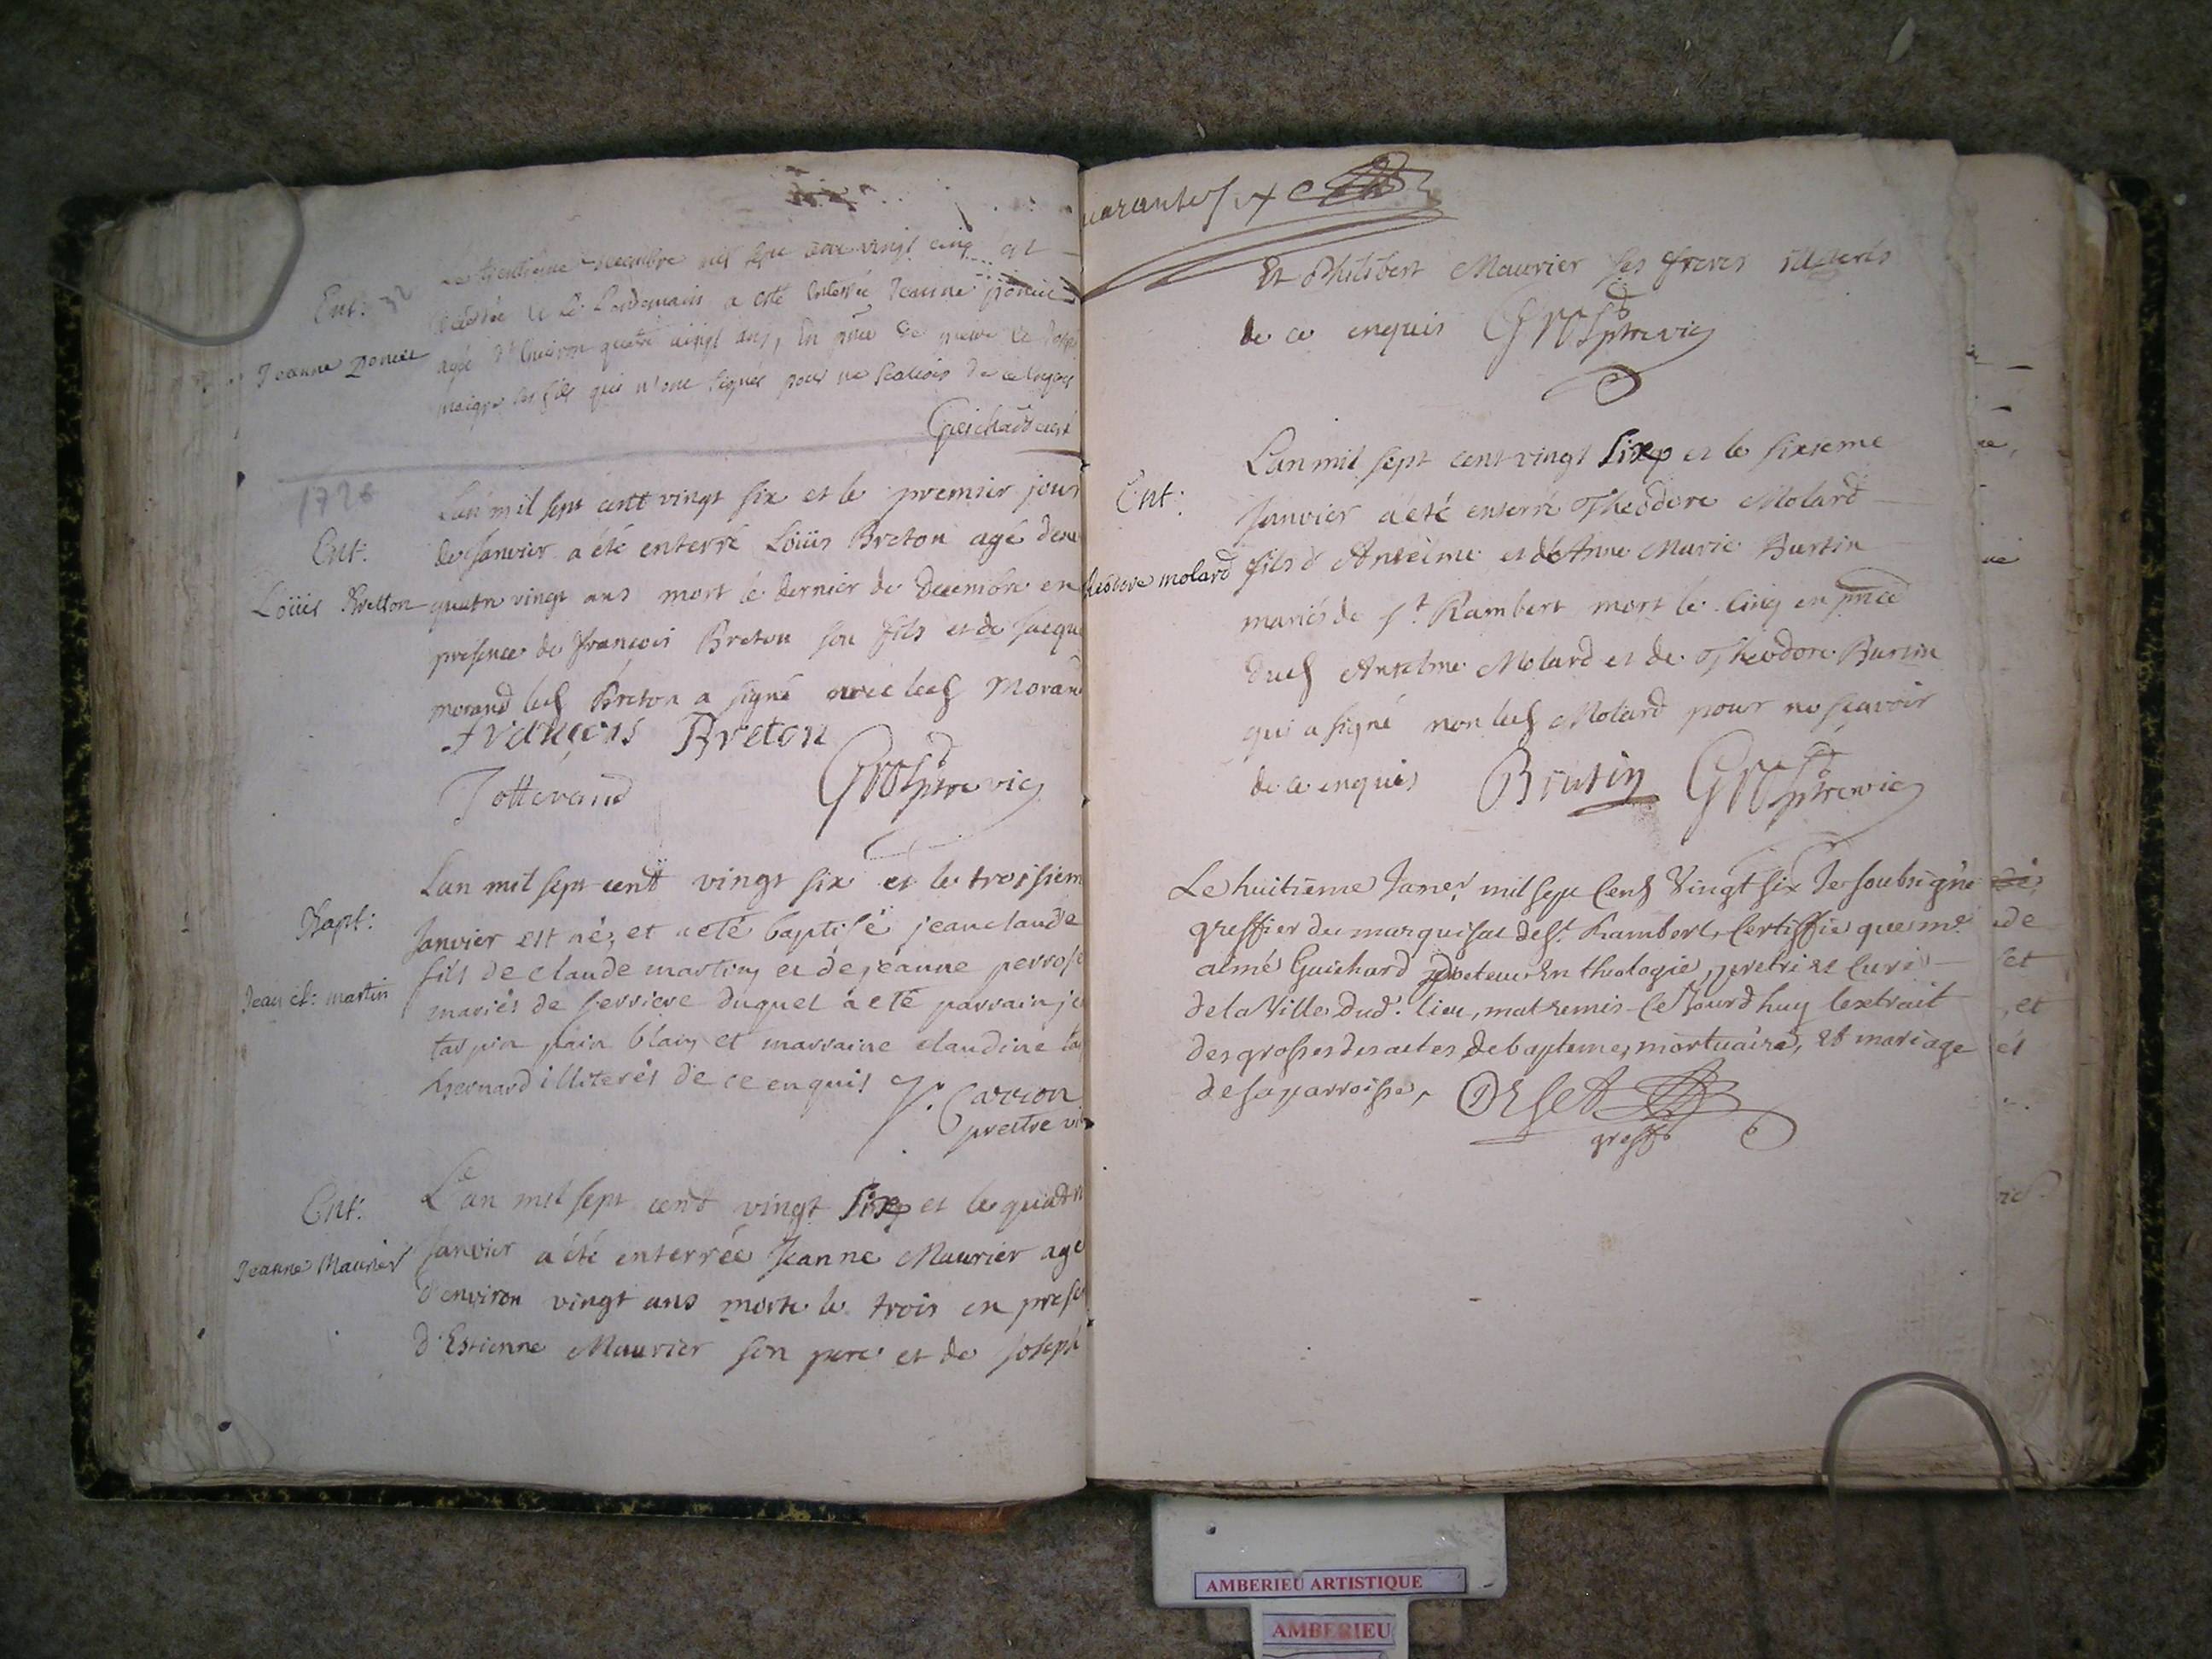 Ent:
Jeanne
Le trentieme decembre mil sept cent vingt cinq est
decedée et le lendemain a esté enterrée Jeanne
agée d'environ quatre vingt ans, En de pierre et
maigre ses fils qui n'ont signés pour ne de ce
Guichard curé
1726
Ent:
Loüis Bretton
L'an mil sept centt vingt six et le premier jour
de Janvier a été enterré Loüis Breton agé
quatre vingt ans mort le dernier de Decembre en
presence de françois Breton son fils et de Jacque
morand led Breton a signé avec led Morand
François Breton
Jottevand Gros ptre vic
Bapt:
Jean cl: martin
Lan mil sept centt vingt six et le troisiem
Janvier est né, et a eté baptisé jeanclaude
fils de claude martin et de jéanne perrose
mariés de serriere duquel a eté parrain je
tarpin pain blanc et marraine claudine
bernard illiterés de ce enquis J. Carron
prestre vi
Ent:
Jeanne Maurier
L'an mil sept centt vingt Six et le quatr
Janvier a été enterrée Jeanne Maurier agé
d'environ vingt ans morte le trois en prese
d'Estienne Maurier son pere et de Joseph
uarantesix
Et Philibert Maurier ses freres illiterés
de ce enquis Gros ptre vic
Ent:
heodore molard
L'an mil sept cent vingt Six et le sixieme
Janvier a été enterré Theodore Molard
fils d'Anselme et de Anne Marie Burtin
mariés de St. Rambert mort le cinq en pnce
dud Anselme Molard et de Theodore Burtin
qui a signé non led Molard pour ne scavoir
de ce enquis Brutin Gros ptre vic
Le huitieme Janer. mil sept Cent Vingt six Je soubsigné
greffier du marquisat de St. Rambert, Certiffie que mre
aimé Guichard docteur En theologie, pretre et Curé
de la Ville dud. lieu, mat remis Ce Jourd huy lextrait
des grosses des actes de bapteme, mortuaire, et mariage
de sa parroisse, Orset
greff
ne,
ue
de
et
, et
és
AMBERIEU ARTISTIQUE
AMBERIEU